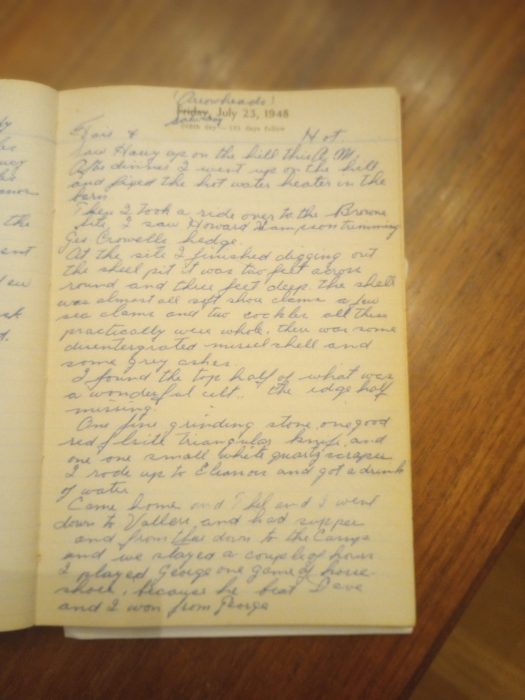 (Arrowheads)
Friday, July 23, 1948
Saturday
205th day — 161 days follow
Fair & Hot
Saw Harry up on the hill this A.M.
After dinner I went up on the hill
and fixed the hot water heater in the
barn
Then I took a ride over to the Browne
site, I saw Howard trimming
Geo Crowells hedge.
At the site I finished digging out
the shell pit it was two feet across
round and three feet deep. the shell
was almost all soft shell clams a few
sea clams and two cockles all these
practically were whole, there was some
disentergrated mussel shell and
some grey ashes.
I found the top half of what was
a wonderful celt., "the edge half
missing."
One fine grinding stone, one good
red felsite triangular knife, and
one one small white quartz scraper
I rode up to Eleanors and got a drink
of water
Came home and Phil and I went
down to and had supper
and from thar down to the Camps
and we stayed a couple of hours
I played George one game of horse
shoes, because he beat Dave
and I won from George
the
sent
ask